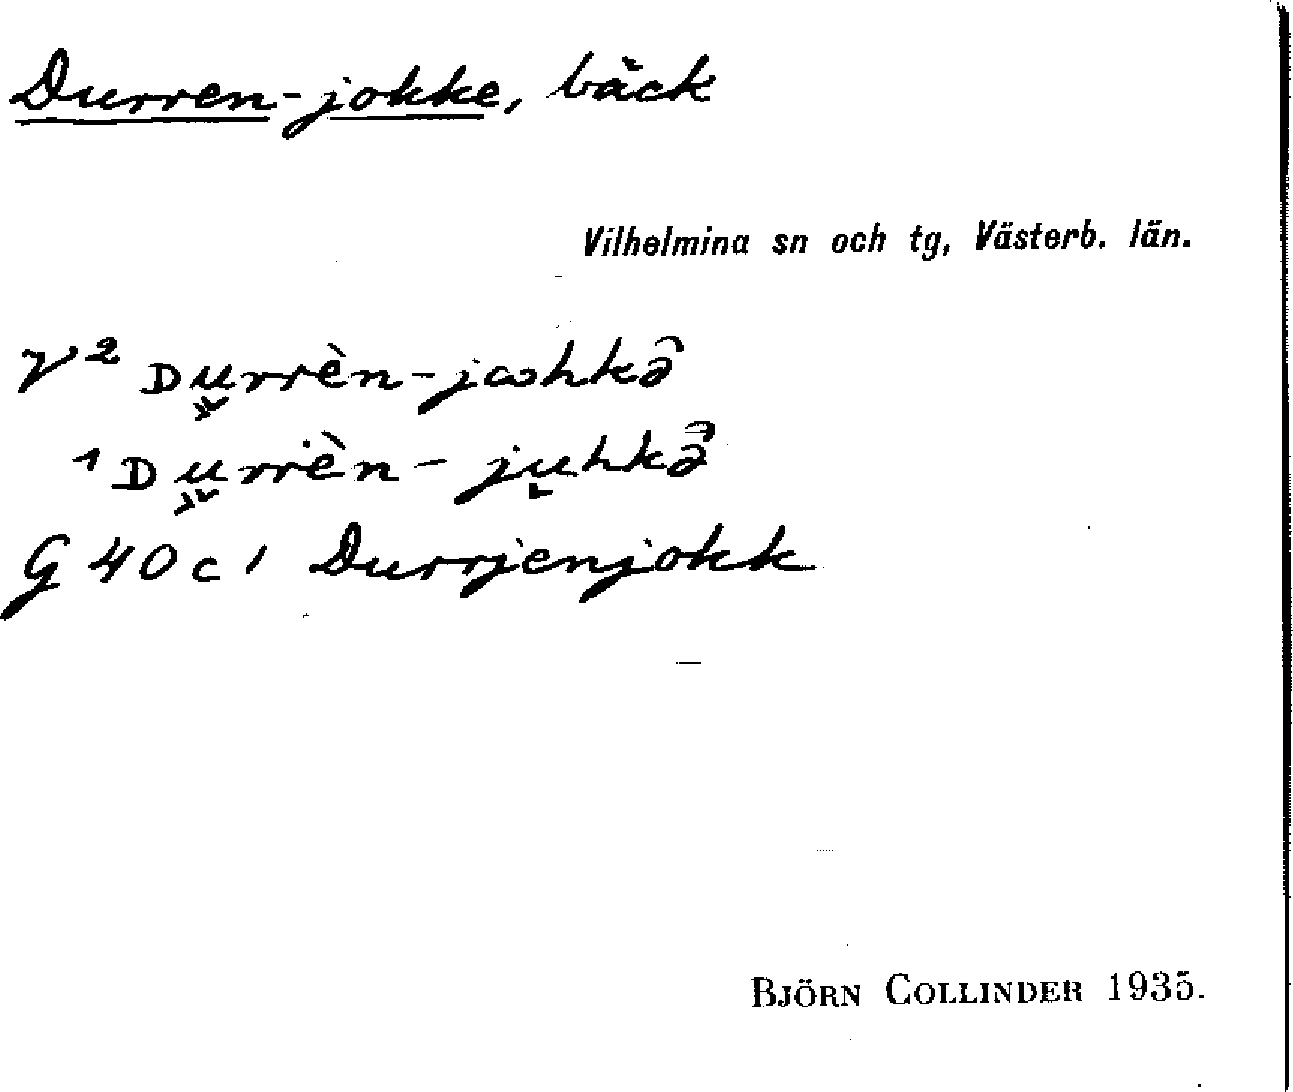 Durren-jokke, bäck
Vilhelmina sn och tg, Västerb. län.
V² Du̬rrèn-jωhkə̑
¹ Du̬rrièn-ju̬hkə̑
G 40 c 1 Durrjenjokk
BJÖRN COLLINDER 1935.